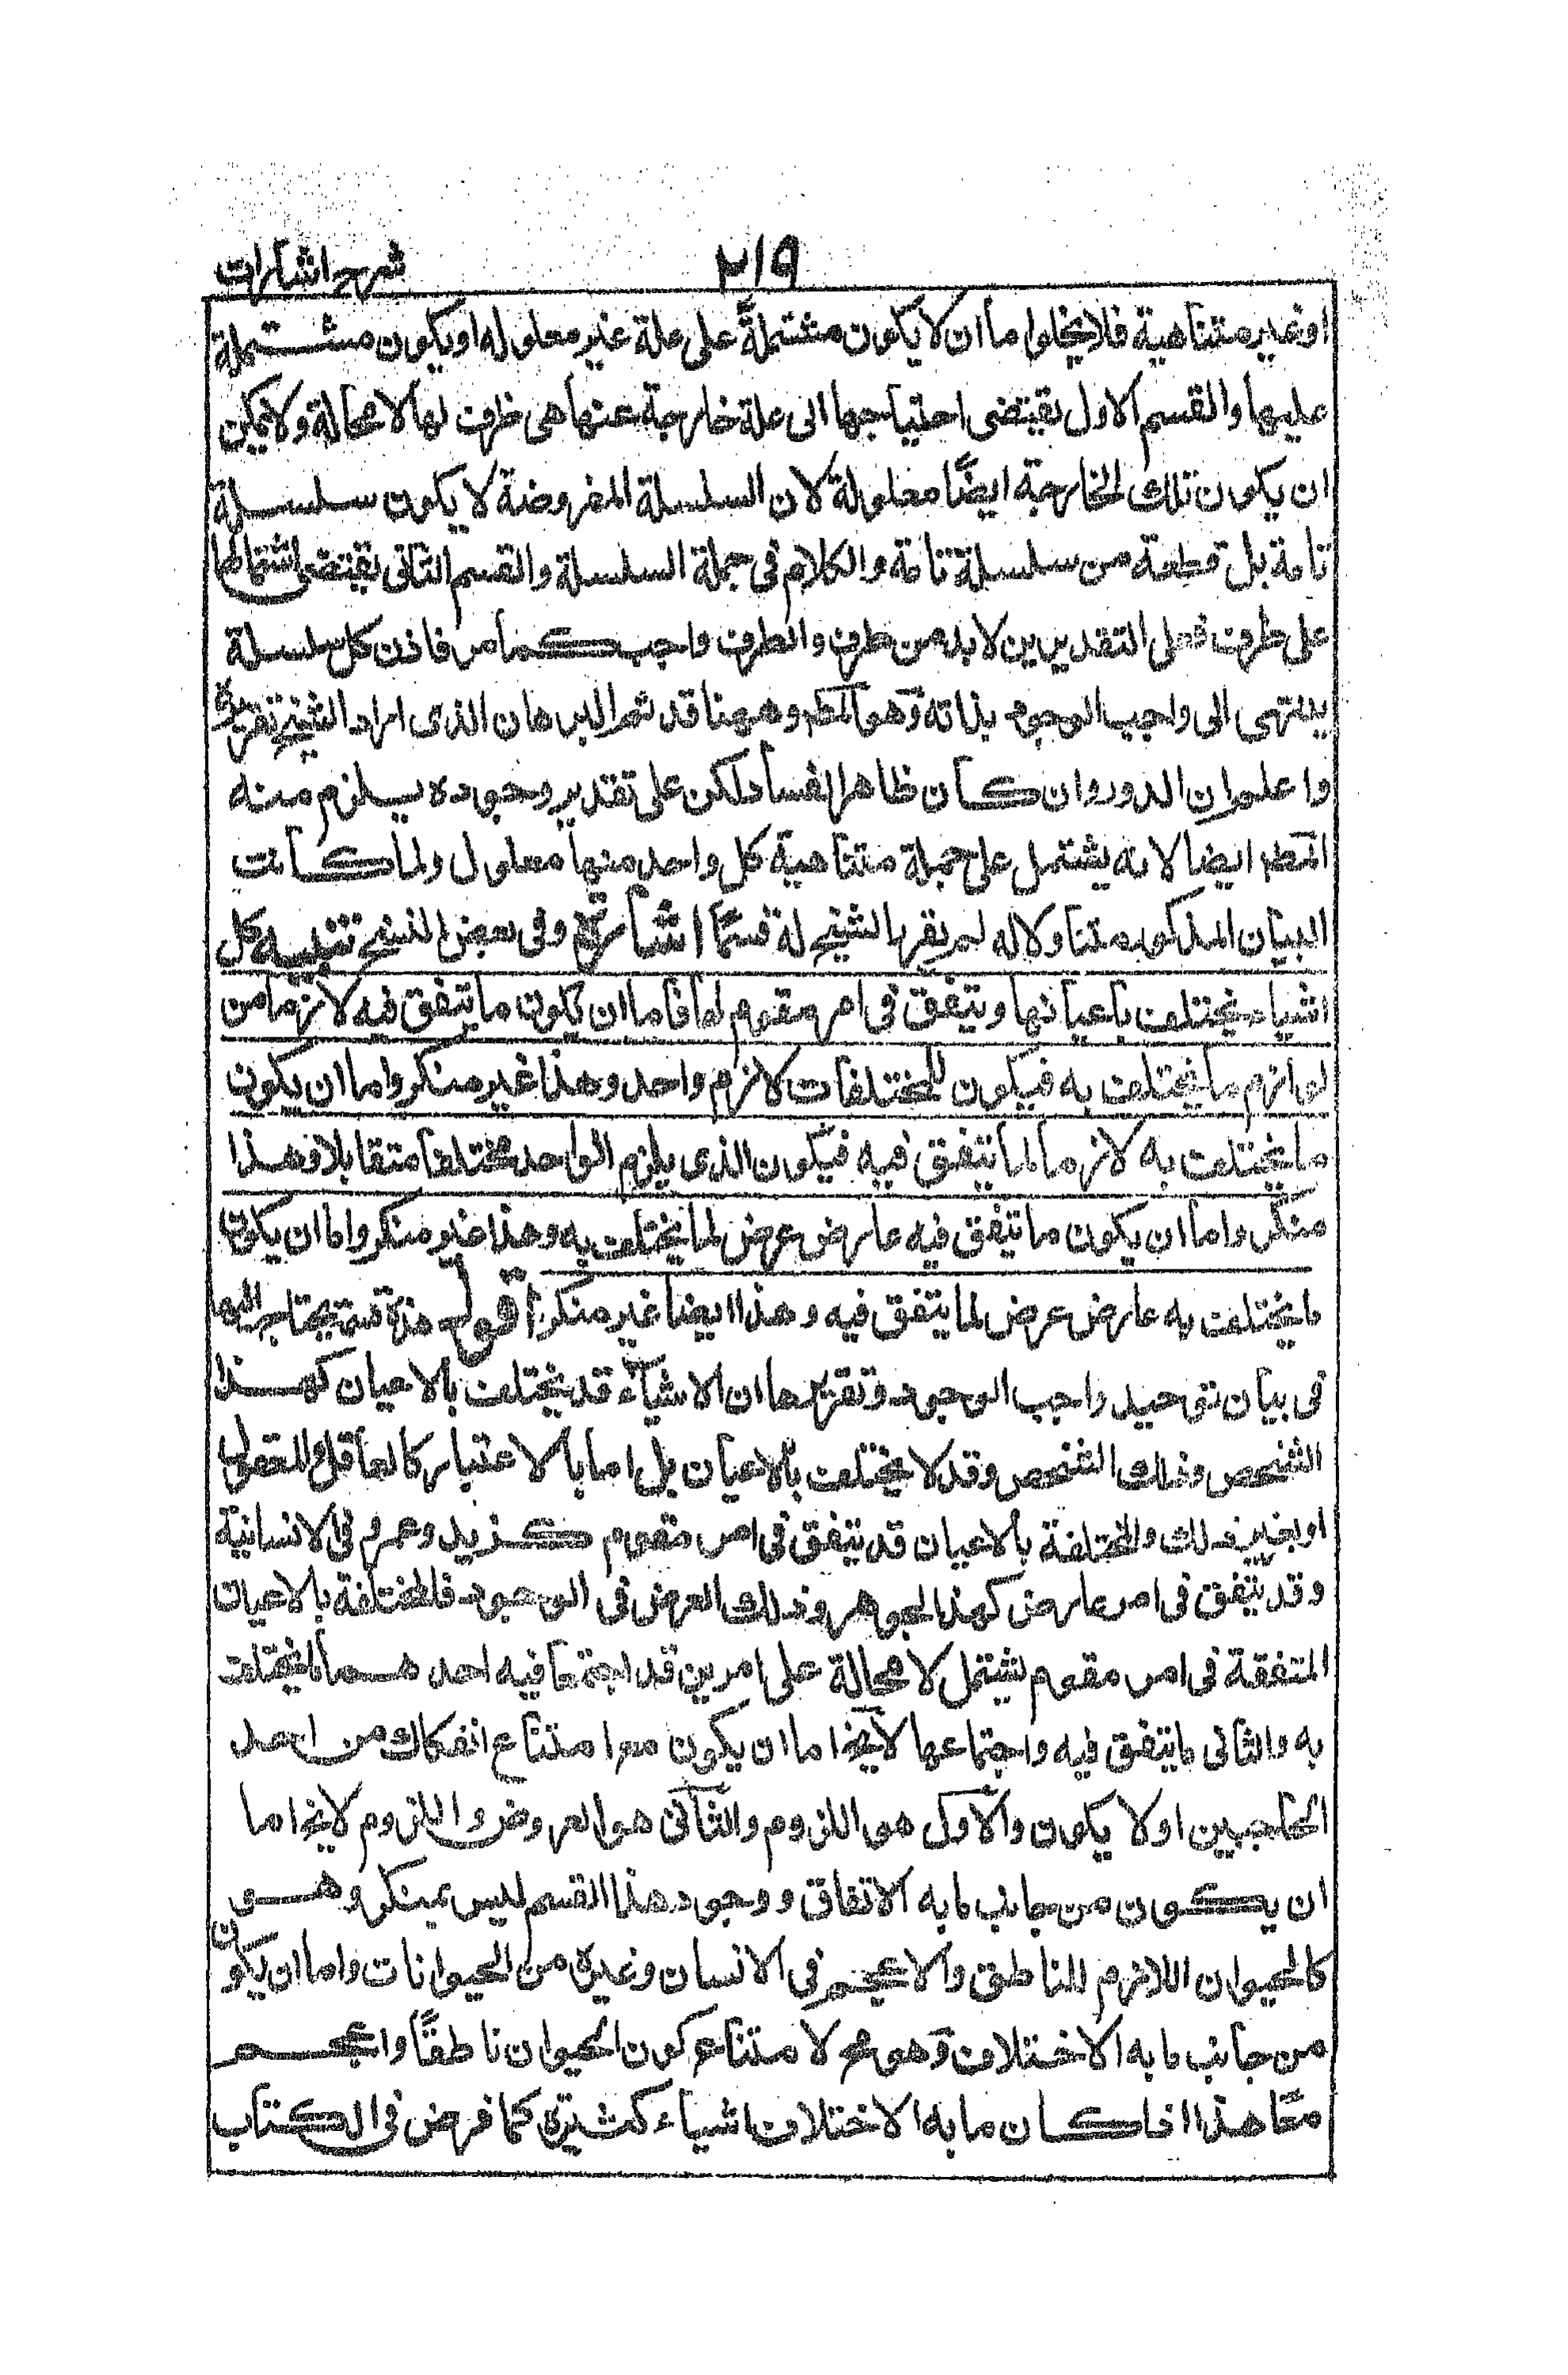 شرح اشارات
٢١٩
او غير متناهية فلا يخلوا ما ان لا يكون مشتملةً على علة غير معلوله او يكون مشتملة
عليها والقسم الاول يقتضى احتياجها الى علة خارجة عنها هى طرف لها لا محالة ولا يمكن
ان يكون تلك الخارجة ايضًا معلولة لان السلسلة المفروضة لا يكون سلسلة
تامة بل قطعة من سلسلة تامة والكلام فى جملة السلسلة والقسم الثانى يقتضى اشتمالها
على طرف فعلى التقديرين لا بد من طرف والطرف واجب كما مر فاذن كل سلسلة
ينتهى الى واجب الوجود بذاته وهو المط وههنا قد تم البرهان الذى اراد الشيخ تقريره
واعلم ان الدور وان كان ظاهر الفساد لكن على تقدير وجوده يلزم منه
المط ايضا لانه يشتمل على جملة متناهية كل واحد منها معلول ولما كانت
البيان المذكور متناولاله لم يفرد الشيخ له قسمًا اشارة وفى بعض النسخ تنبيه كل
اشياء يختلف باعيانها ويتفق فى امر مقوم لها فاما ان يكون ما يتفق فيه لازما من
لوازم ما يختلف به فيكون للمختلفات لازم واحد وهذا غير منكر واما ان يكون
ما يختلف به لازما لما يتفق فيه فيكون الذى يلزم الواحد مختلفا متقابلا وهذا
منكر واما ان يكون ما يتفق فيه عارض عرض لما يختلف به وهذا غير منكر واما ان يكون
ما يختلف به عارض عرض لما يتفق فيه وهذا ايضا غير منكر اقول هذه قسمة يحتاج اليها
فى بيان توحيد واجب الوجود وتقريرها ان الاشياء قد يختلف بالاعيان كهذا
الشخص وذلك الشخص وقد لا يختلف بالاعيان بل اما بالاعتبار كالعاقل والمعقول
او بغير ذلك والمختلفة بالاعيان قد يتفق فى امر مقوم كزيد وعمرو فى الانسانية
وقد يتفق فى امر عارض كهذا الجوهر وذلك العرض فى الوجود فالمختلفة بالاعيان
المتفقة فى امر مقوم يشتمل لا محالة على امرين قد اجتمعا فيه احدهما ما يختلف
به والثانى ما يتفق فيه واجتماعها لا يخ اما ان يكون مع امتناع انفكاك من احد
الجانبين او لا يكون والاول هو اللزوم والثانى هو العروض واللزوم لا يخ اما
ان يكون من جانب ما به الاتفاق ووجود هذا القسم ليس بمنكر وهو
كالحيوان اللازم للناطق والاعجم فى الانسان وغيره من الحيوانات واما ان يكون
من جانب ما به الاختلاف وهو مح لامتناع كون الحيوان ناطقًا واعجم
معًا هذا اذا كان ما به الاختلاف اشياء كثيرة كما فرض فى الكتاب